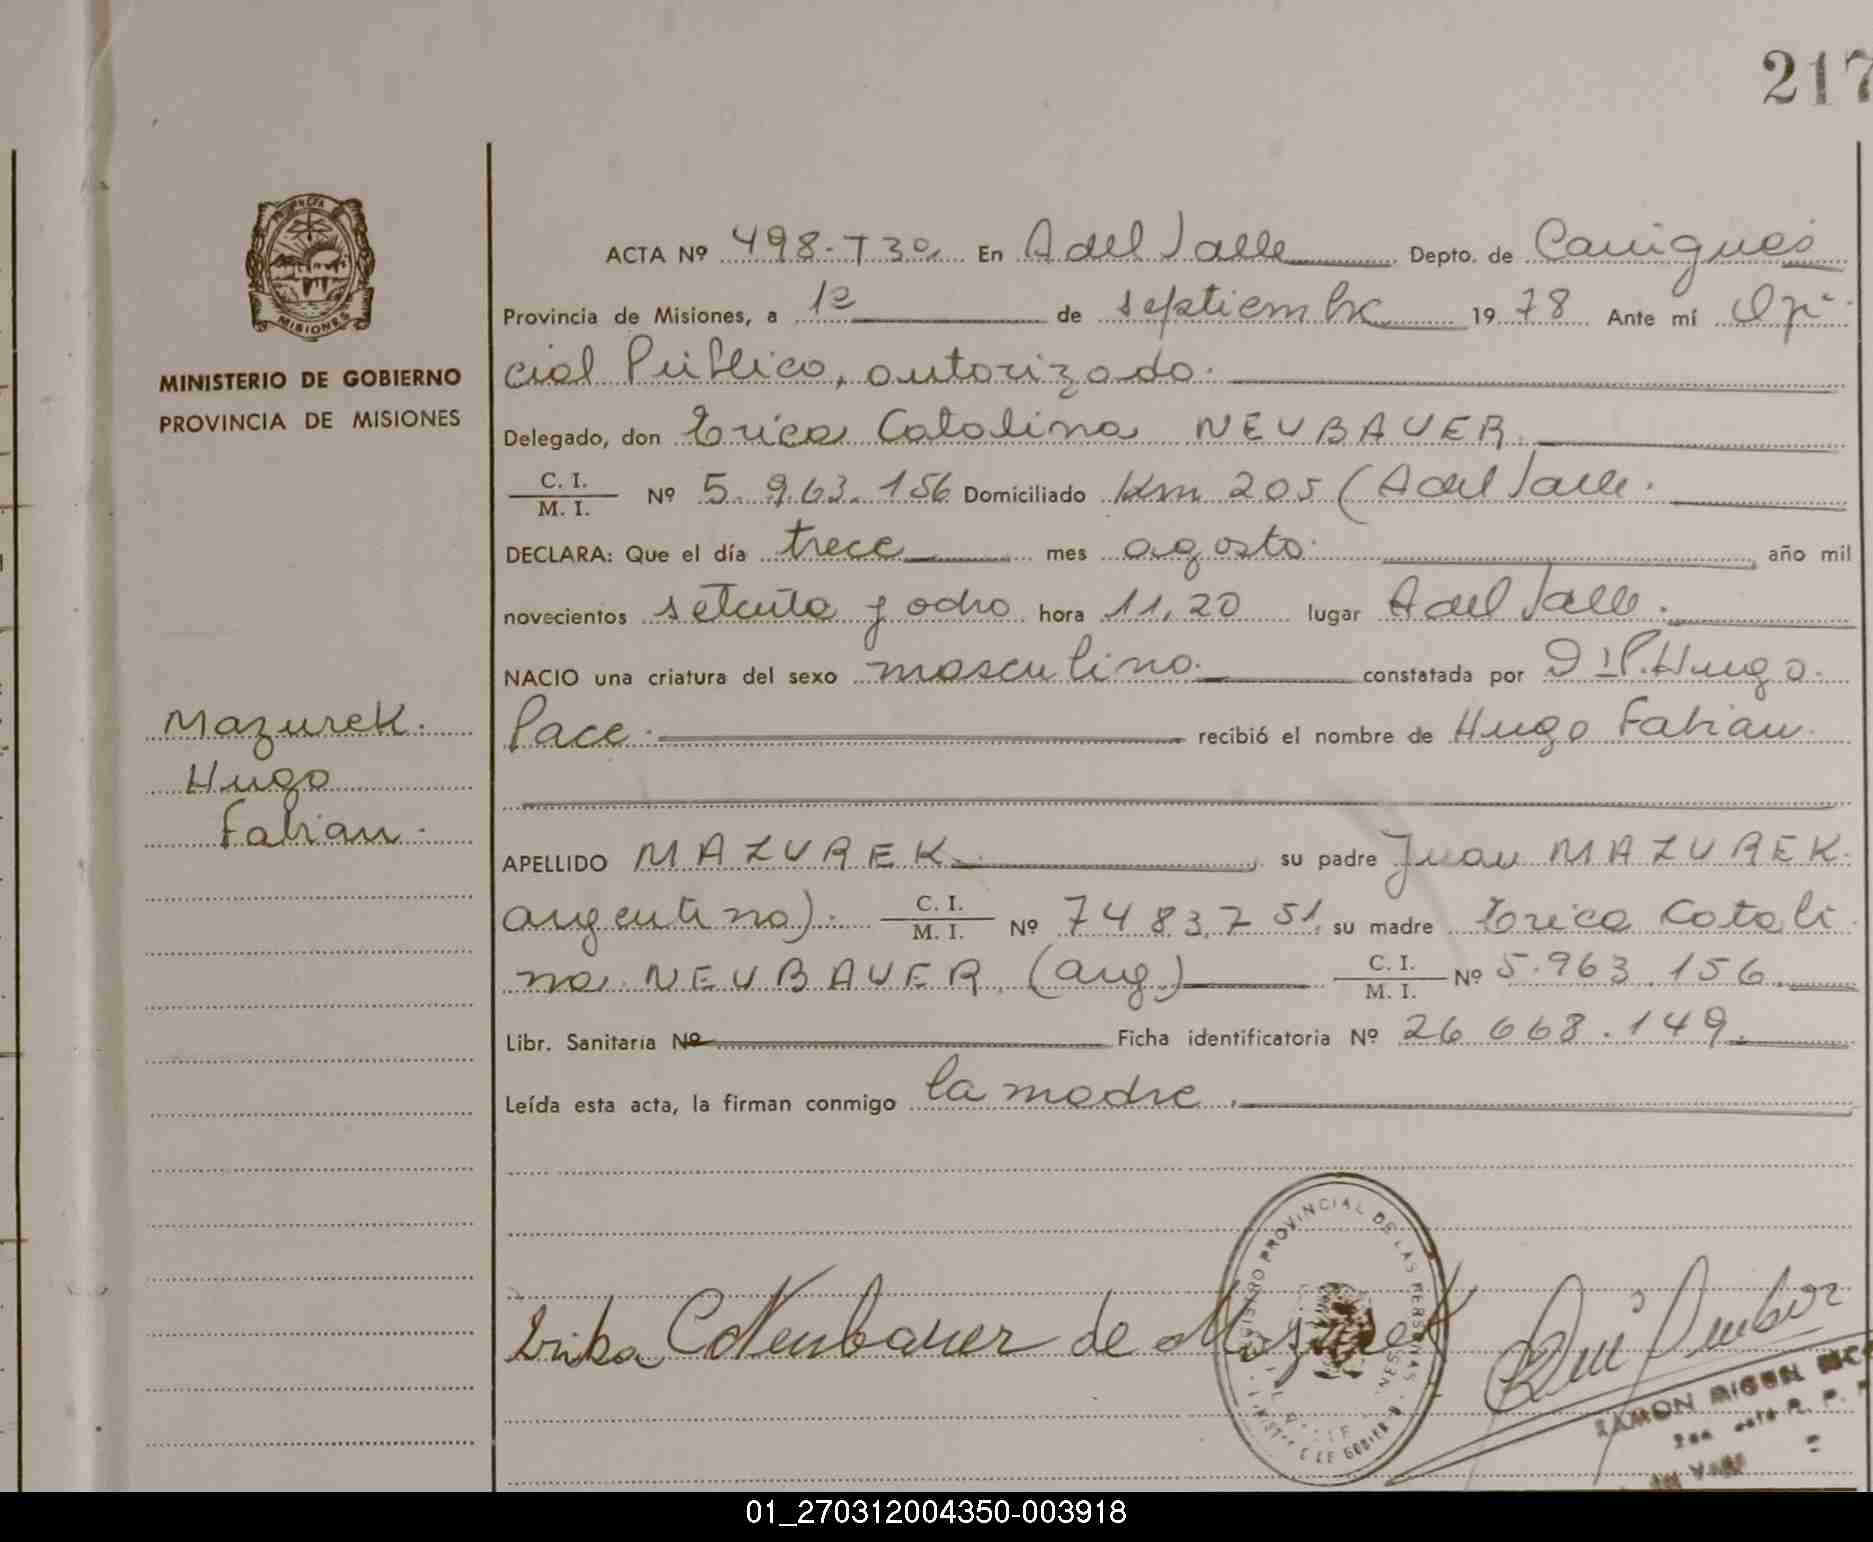 217
ACTA Nº 498-Tº3º En A del Valle Depto. de Cainguás
Provincia de Misiones, a 12 de septiembre 1978 Ante mí Ofi-
cial Público, autorizado.
MINISTERIO DE GOBIERNO
PROVINCIA DE MISIONES
Delegado, don Erica Catalina NEUBAUER
C. I.
M. I. Nº 5.963.156 Domiciliado Km 205 (A del Valle.
DECLARA: Que el día trece mes agosto. año mil
novecientos setenta y ocho hora 11,20 lugar A del Valle.
NACIO una criatura del sexo masculino. constatada por Hugo.
Mazurek.
Hugo
Fabian.
Pace. recibió el nombre de Hugo Fabian.
APELLIDO MAZUREK su padre Juan MAZUREK
argentino). C. I.
M. I. Nº 7483.751 su madre Erica Catali
na NEUBAUER (arg) C. I.
M. I. Nº 5.963.156
Libr. Sanitaria Nº Ficha identificatoria Nº 26 668.149.
Leída esta acta, la firman conmigo la madre.
Erika C Neubauer de Mazurek
REGISTRO PROVINCIAL DE LAS PERSONAS
RAMON MIGUEL
PROVINCIA
MISIONES
01_270312004350-003918